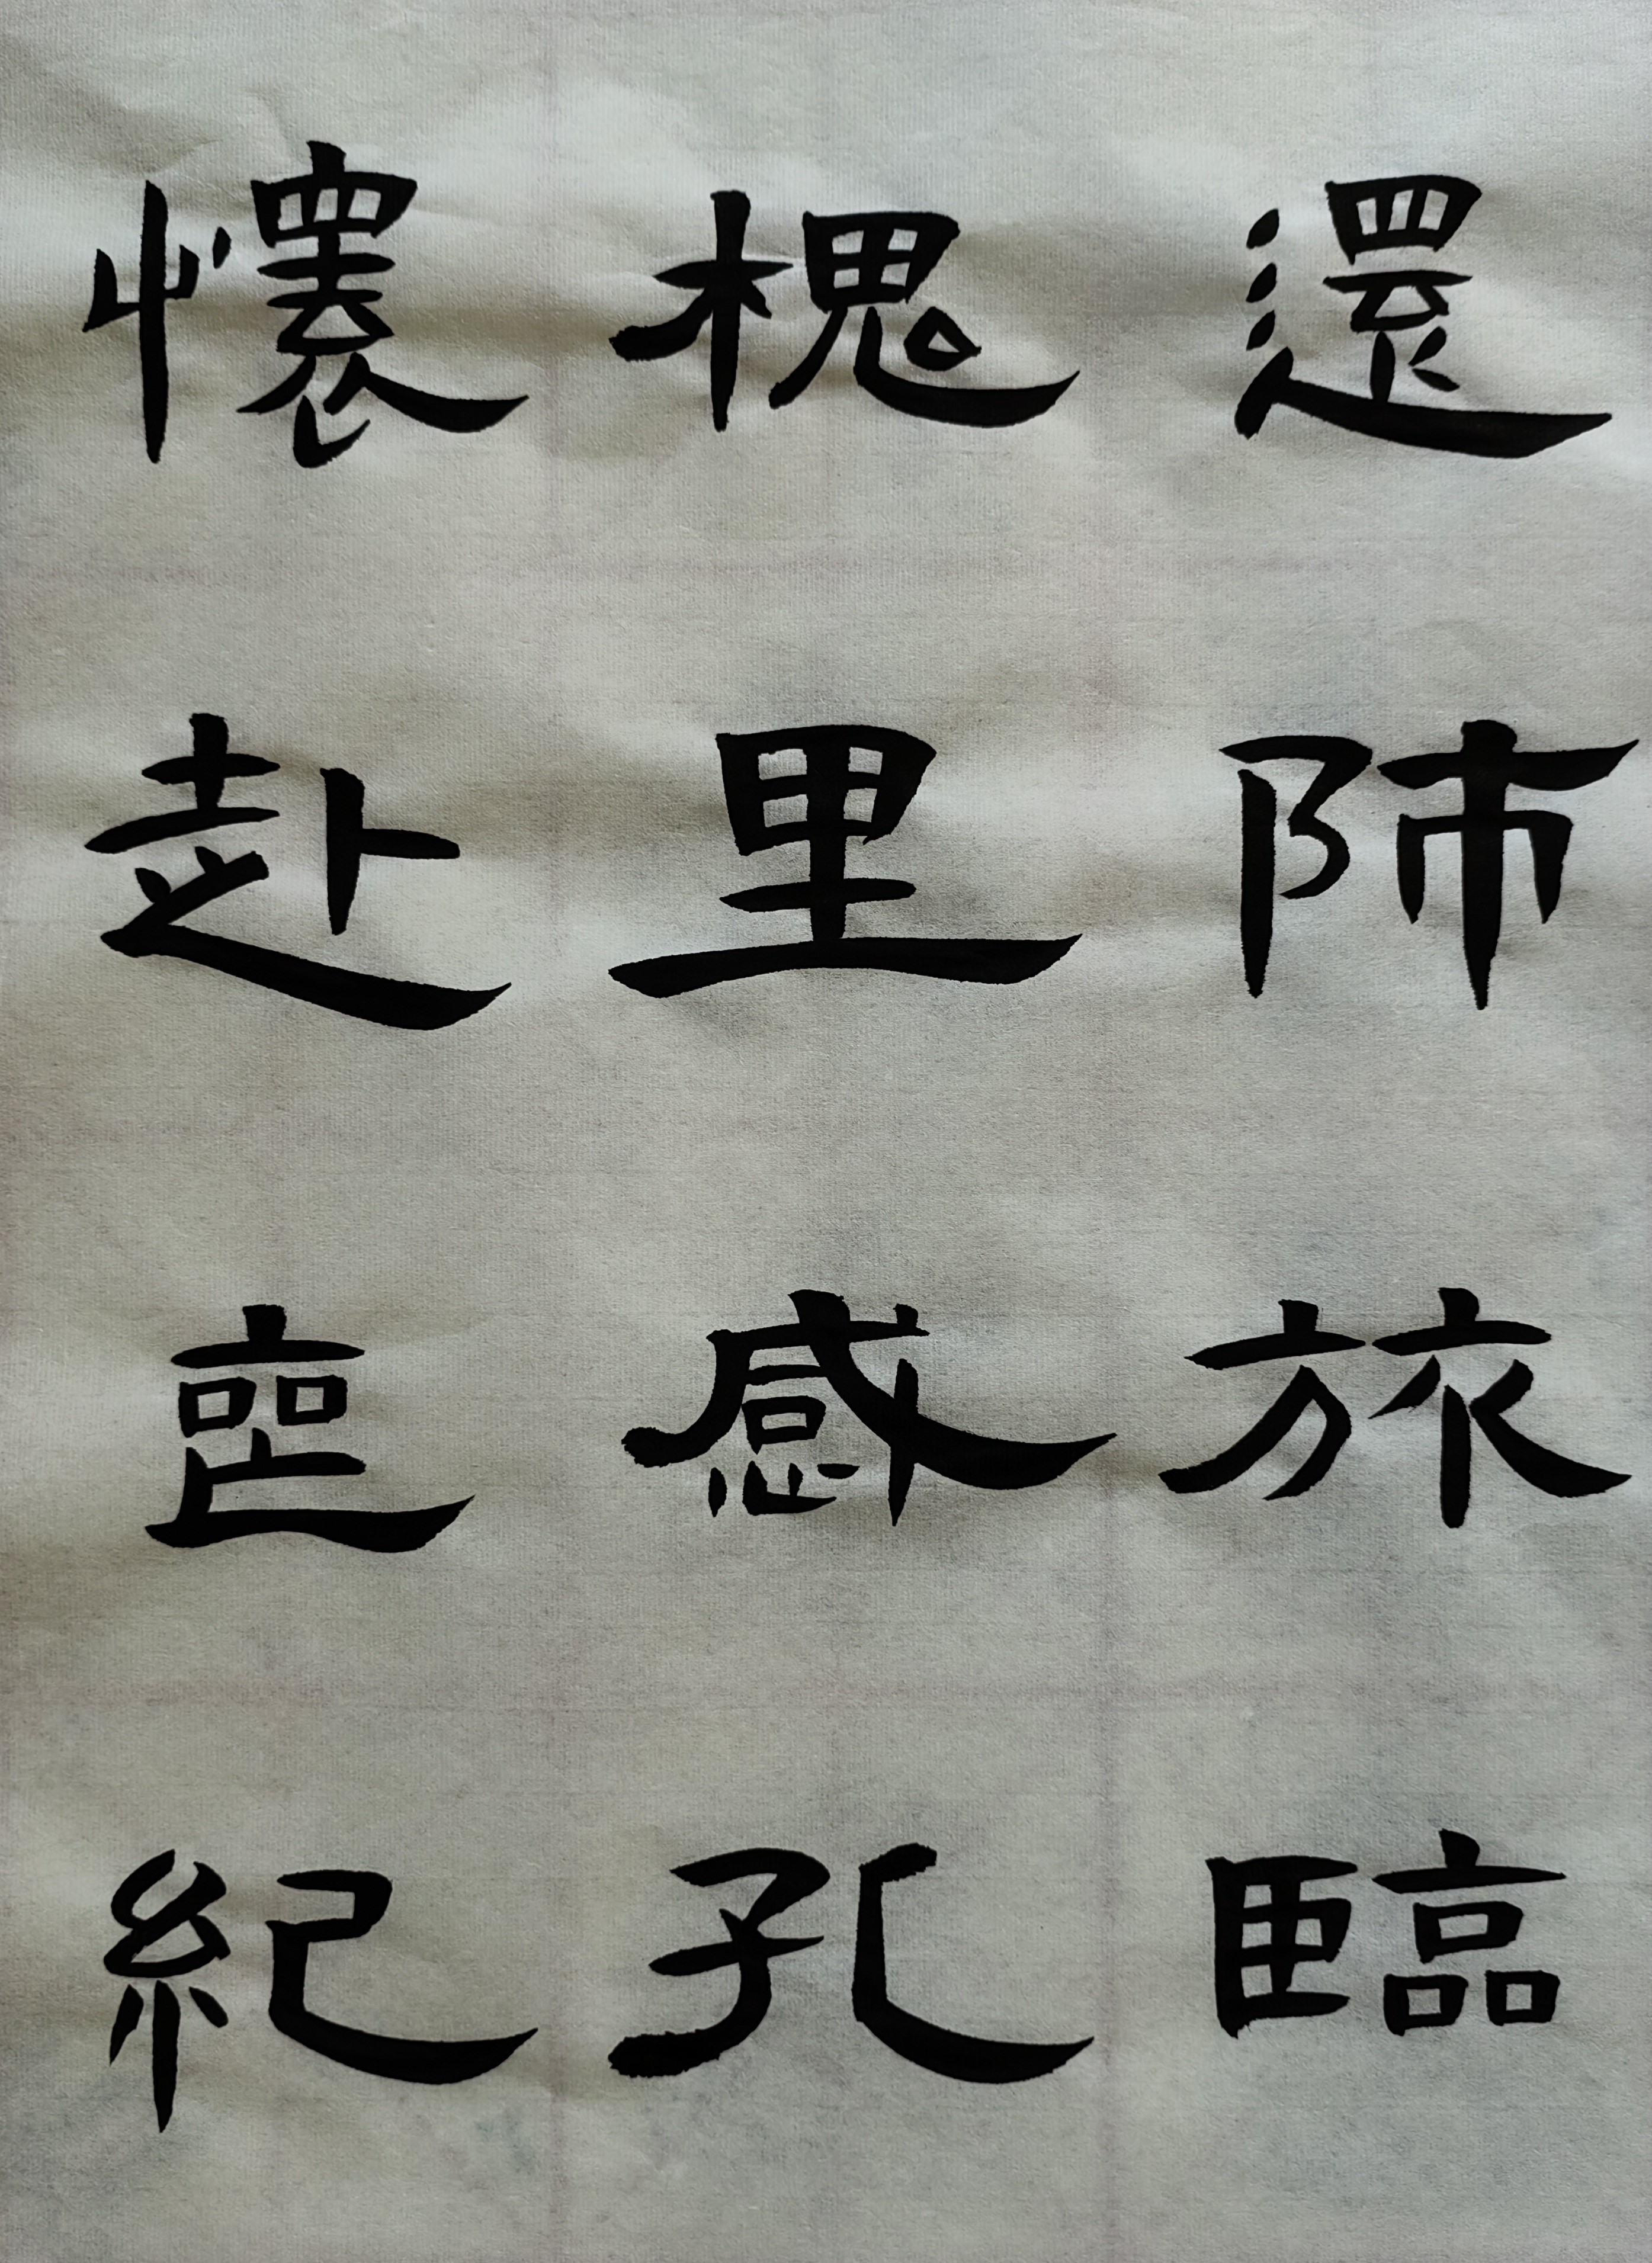 還師旅臨
槐里感孔
懷赴喪紀